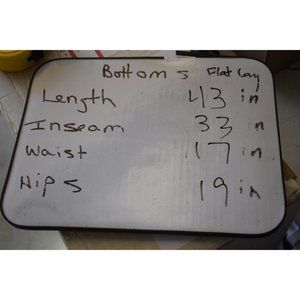 Bottoms Flat Lay
Length 43 in
Inseam 33 in
Waist 17 in
Hips 19 in